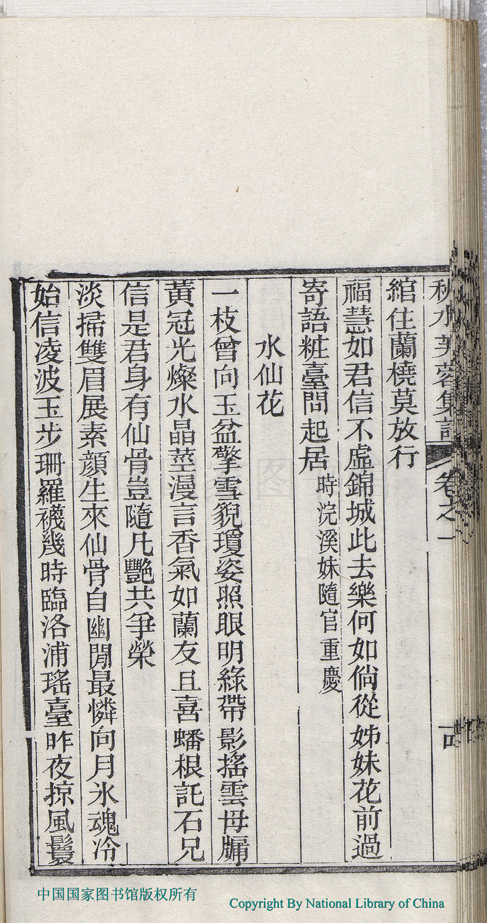 秋水芙蓉集詩 卷之一
綰住蘭橈莫放行
福慧如君信不虛錦城此去樂何如倘從姊妹花前過
寄語粧臺問起居 時浣溪妹隨官重慶
水仙花
一枝曾向玉盆擎雪貌瓊姿照眼明綠帶影搖雲母牖
黃冠光燦水晶莖漫言香氣如蘭友且喜蟠根託石兄
信是君身有仙骨豈隨凡艷共爭榮
淡掃雙眉展素顏生來仙骨自幽閒最憐向月氷魂冷
始信凌波玉步珊羅襪幾時臨洛浦瑤臺昨夜掠風鬟
中国国家图书馆版权所有
Copyright By National Library of China